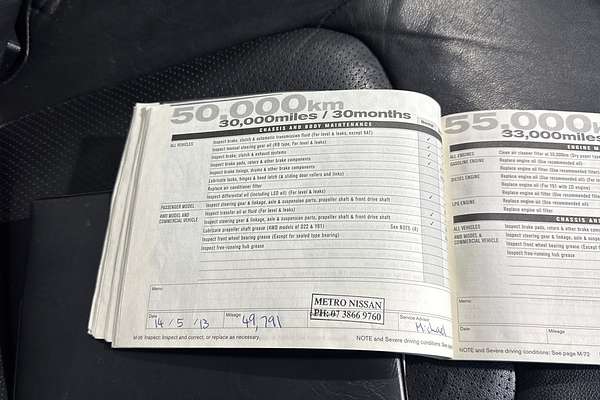 50,000km
30,000miles / 30months
CHASSIS AND BODY MAINTENANCE
ALL VEHICLES
Inspect brake, clutch & automatic transmission fluid (For level & leaks, except 6AT)
Inspect manual steering gear oil (RB type, For level & leaks)
Inspect brake, clutch & exhaust systems
Inspect brake pads, rotors & other brake components
Inspect brake linings, drums & other brake components
Lubricate locks, hinges & hood latch (& sliding door rollers and links)
Replace air conditioner filter
Inspect differential oil (including LSD oil) (For level & leaks)
PASSENGER MODEL
Inspect steering gear & linkage, axle & suspension parts, propeller shaft & front drive shaft
4WD MODEL AND COMMERCIAL VEHICLE
Inspect transfer oil or fluid (For level & leaks)
Inspect steering gear & linkage, axle & suspension parts, propeller shaft & front drive shaft
Lubricate propeller shaft grease (4WD models of D22 & Y61) See NOTE (4)
Inspect front wheel bearing grease (Except for sealed type bearing)
Inspect free-running hub grease
Memo:
METRO NISSAN
PH: 07 3866 9760
Date 14/5/13 Mileage 49,791 Service Advisor Michael
Inspect: Inspect and correct, or replace as necessary.
NOTE and Severe driving conditions: See
55,000
33,000miles
ENGINE M
ALL ENGINES
GASOLINE ENGINE
Replace engine oil (Use recommended oil)
Replace engine oil filter
DIESEL ENGINE
Replace engine oil (Use recommended oil)
Replace engine oil filter
LPG ENGINE
Replace engine oil (Use recommended oil)
Replace engine oil filter
CHASSIS AN
ALL VEHICLES
Inspect brake pads, rotors & other brake com
4WD MODEL & COMMERCIAL VEHICLE
Inspect steering gear & linkage, axle & sus
Inspect front wheel bearing grease (Exce
Inspect free-running hub grease
Memo:
Date Mileage
NOTE and Severe driving conditions: See page M-73